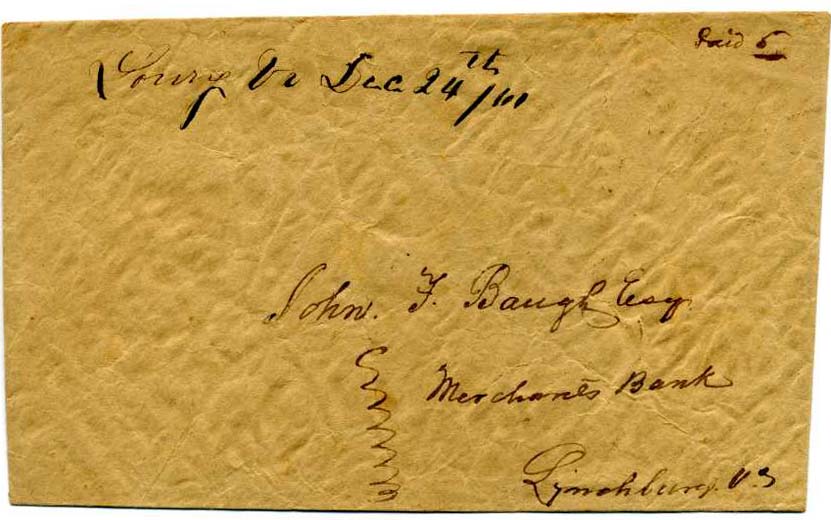 Paid 5
Lowry Va Dec 24th/61
John. F. Baugh Esq.
Merchants Bank
Lynchburg. Va